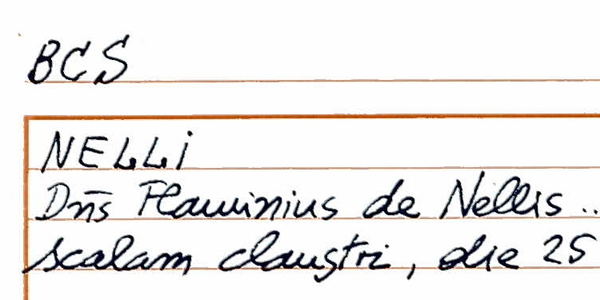 BCS
NELLI
Dn̄s Flaminius de Nellis ..
scalam claustri, die 25